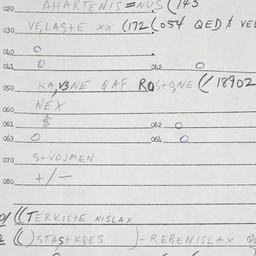 020 AHARTENIS=NUS (143
030 VE,LAS+E xx (172(054 QED $ VEL
040 O
041 O 042 O
050 KA,VBNE QAF ROS+O,NE (/ 18902
060 NEX
061 $ 062 O
063 O 064 O
070 S+VOJMEN
080 +/-
((TERKIS+E NISLAX
()STAS+KRES )-REBENISLAX